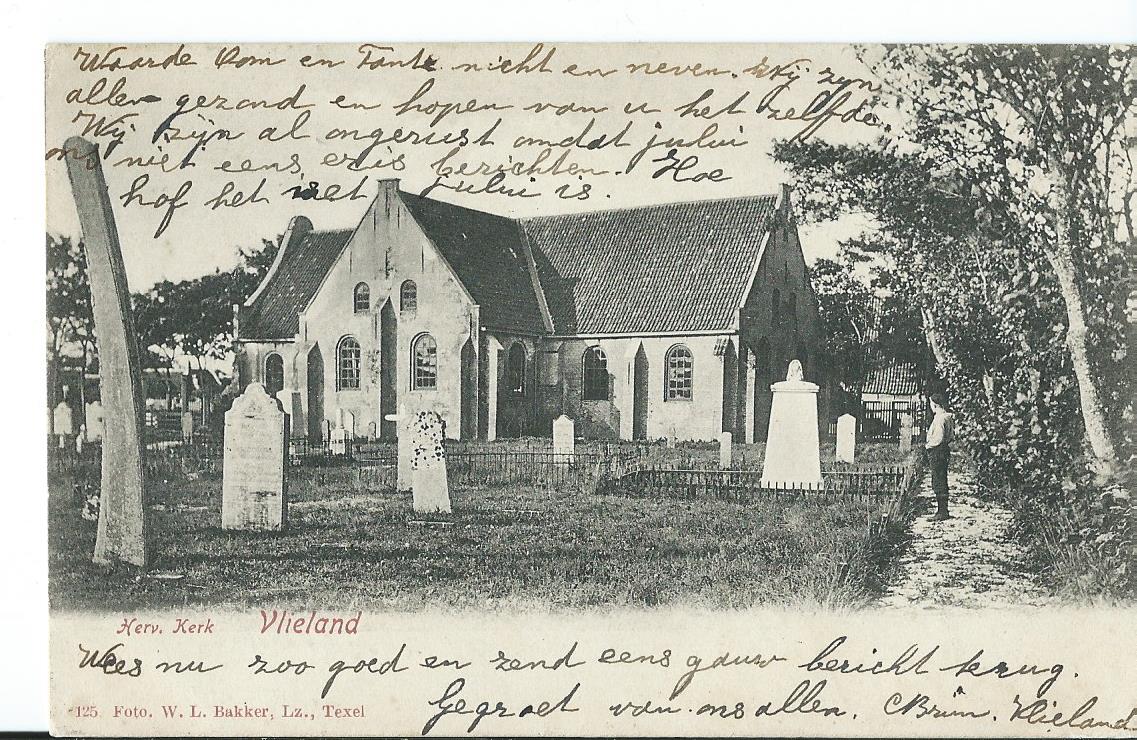 Waarde Oom en Tante nicht en neven. Wij zyn
allen gezond en hopen van u het zelfde
Wij zijn al ongerust omdat jului
ons niet eens eris berichten. Hoe
hof het met jului is.
Herv. Kerk Vlieland
Wees nu zoo goed en zend eens gauw bericht terug.
125 Foto. W. L. Bakker, Lz., Texel
Gegroet van ons allen. Vlieland